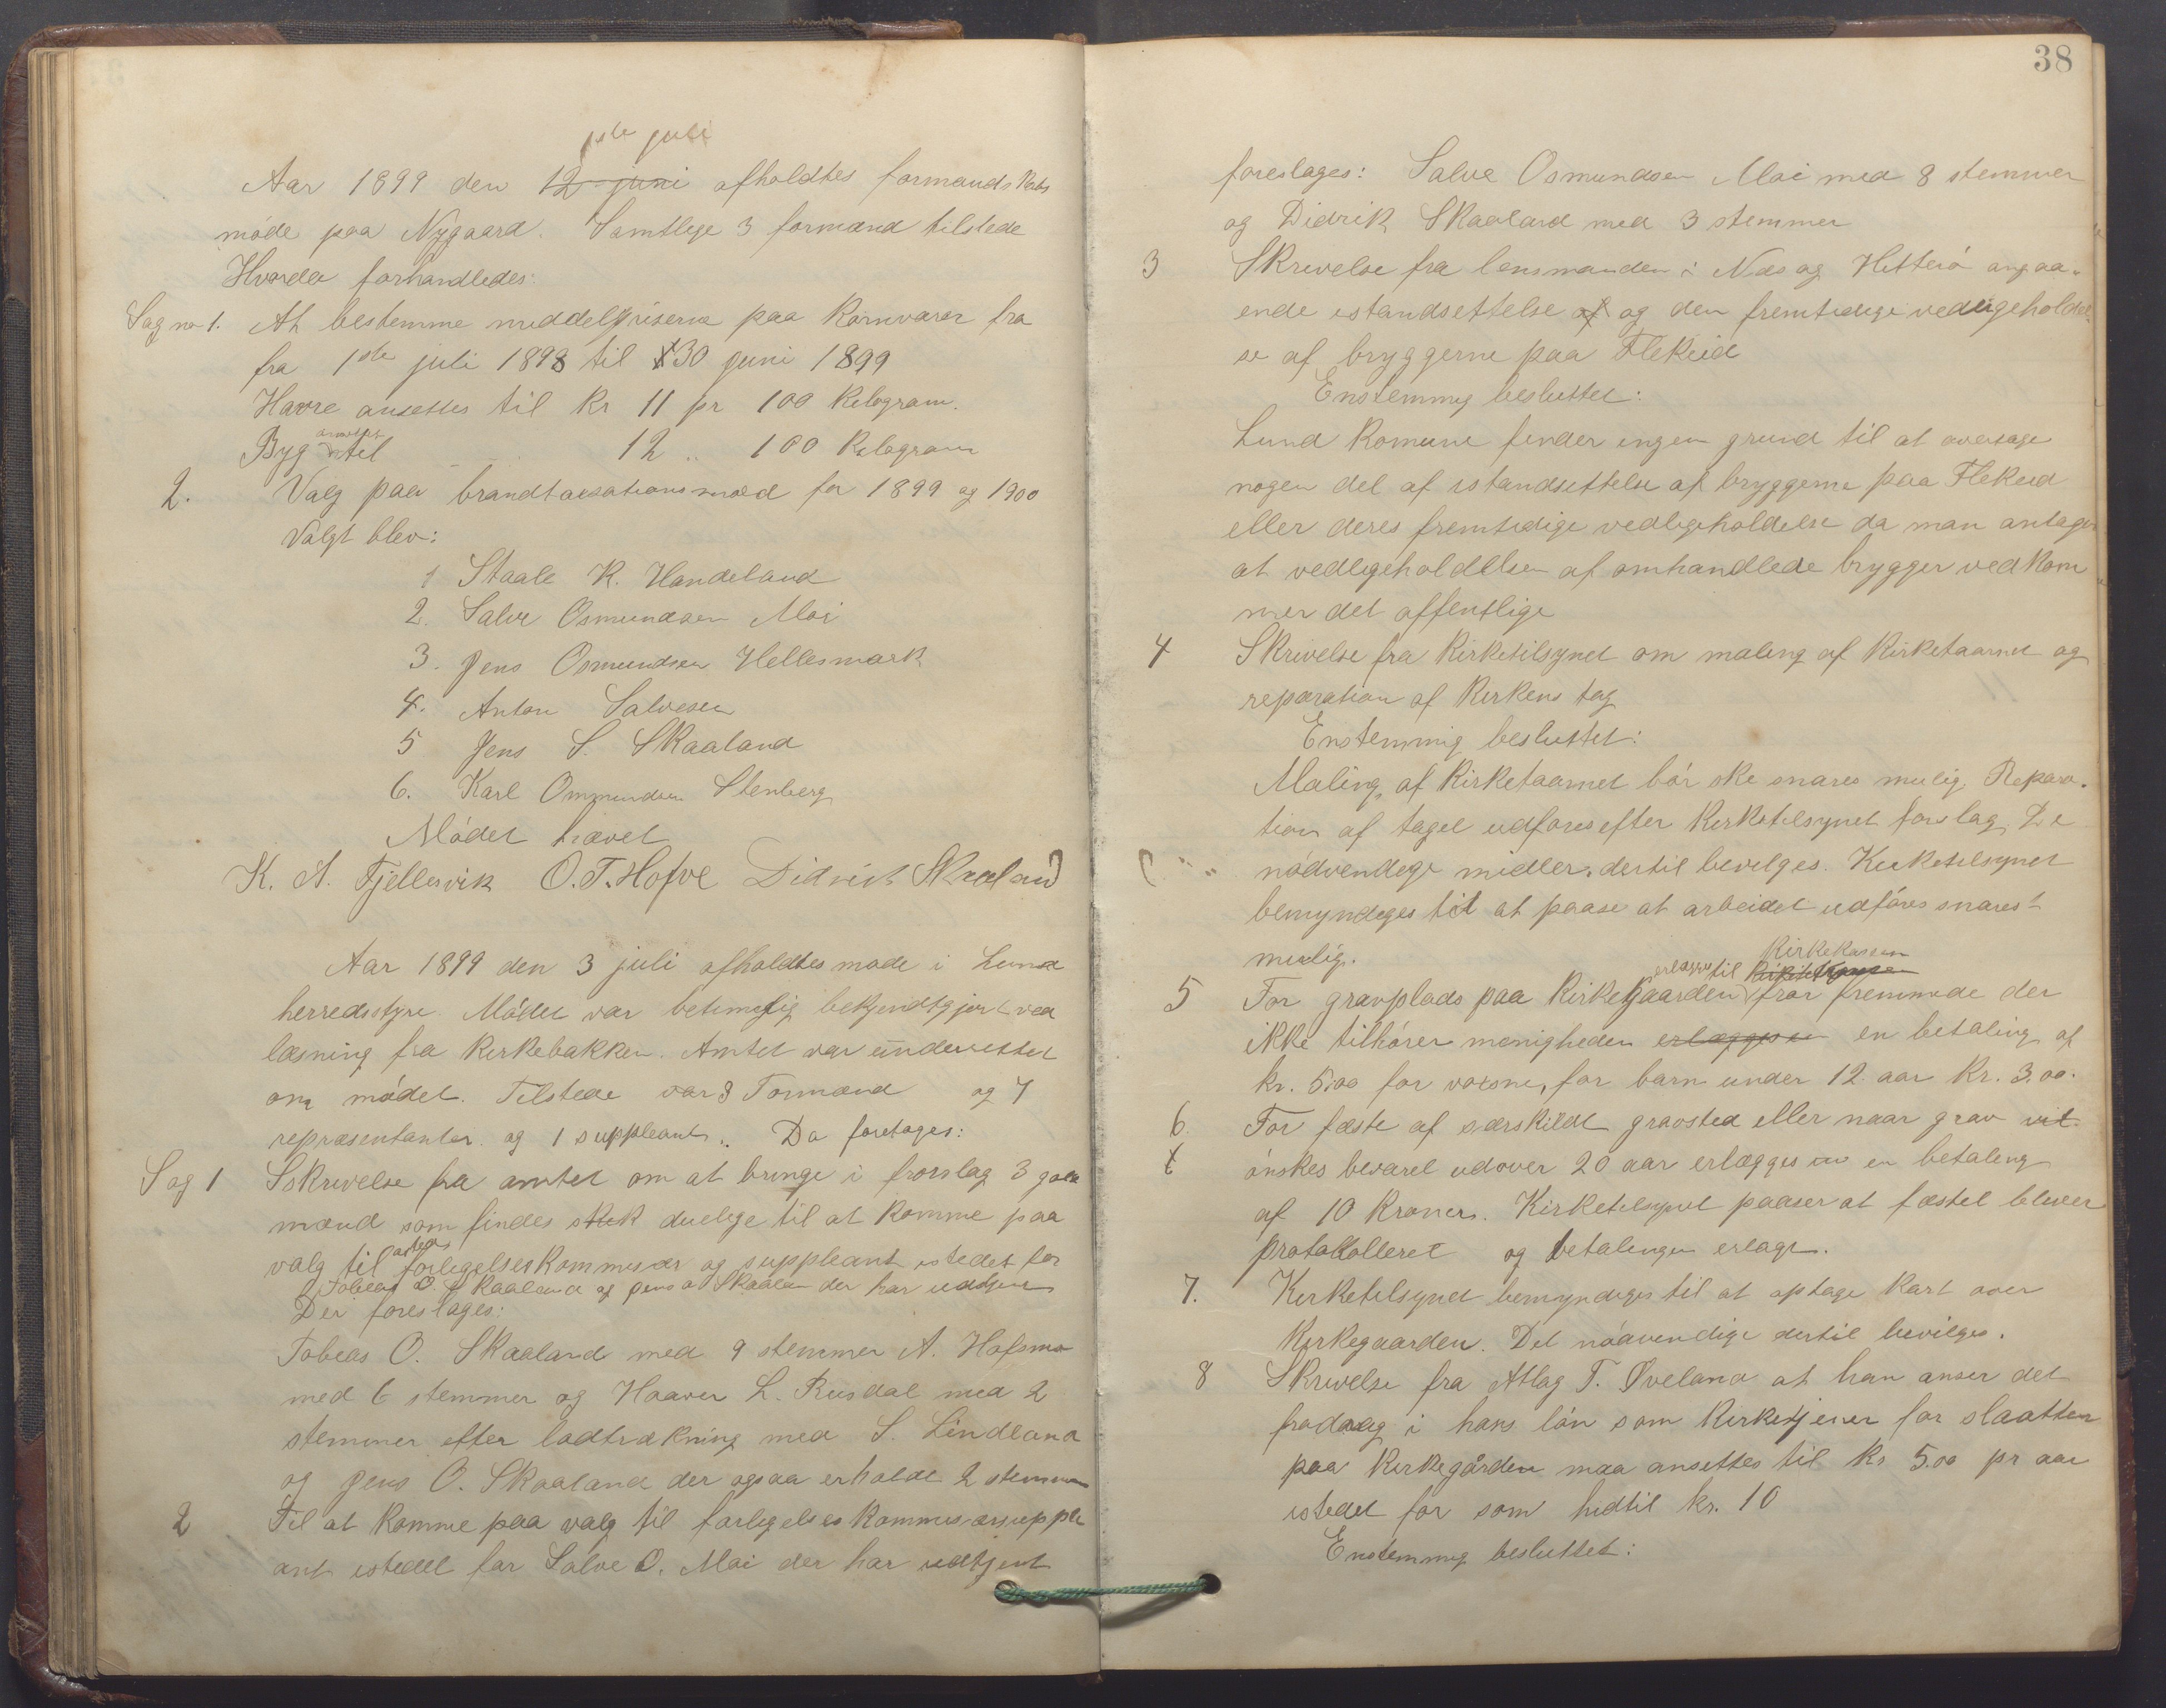 1ste juli
Aar 1899 den 12 juni afholdtes formandskabs
møde paa Nygaard. Samtlige 3 formænd tilstede
Hvorda forhandledes:
Sag no 1. At bestemme middelpriserne paa Kornvarer fra
fra 1ste juli 1898 til 30 juni 1899
Havre ansettes til Kr 11 pr 100 Kilogram.
ansettes
Byg til 12 „ 100 Kilogram
2. Valg paa brandtaxationsmænd for 1899 og 1900
Valgt blev:
1 Staale K. Handeland
2. Salve Osmundsen Moi
3. Jens Osmundsen Hellesmark
4. Anton Salvesen
5 Jens S. Skaaland
6. Karl Ommundsen Stenberg
Mødet hævet
K. A. Fjellesvik O. T. Hofve Didrick Skaaland
Aar 1899 den 3 juli afholdtes møde i Lund
herredsstyre. Mødet var betimelig bekjendtgjort ved
læsning fra Kirkebakken. Amtet var underrettet
om mødet. Tilstede var 3 Formænd og 7
repræsentanter og 1 suppleant. Da foretages:
Sag 1 Sskrivelse fra amtet om at bringe i forslag 3
mænd som findes skik duelige til at komme paa
valg til forligelseskommisær og suppleant istedet for
Tobias O. Skaaland og Jens O Skaaland der har udtjent
Der foreslages:
Tobias O. Skaaland med 9 stemmer A. Hofsmo
med 6 stemmer og Haaver L. Rusdal med 2
stemmer efter lodtrækning med S. Lindland
og Jens O. Skaaland der ogsaa erholdt 2 stemmer
2 Til at komme paa valg til forligelseskommisærsupple
ant istedet for Salve O. Moi der har udtjent
38
foreslages: Salve Osmundsen Moi med 8 stemmer
og Didrik Skaaland med 3 stemmer
3 Skrivelse fra lensmanden i Næs og Hitterø angaa-
ende istandsettelse af og den fremtidige vedligeholdel-
se af bryggerne paa Flekeid
Enstemmig besluttet:
Lund Komune finder ingen grund til at overtage
nogen del af istandsettelse af bryggerne paa Flekeid
eller deres fremtidige vedligeholdelse da man antager
at vedligeholdelsen af omhandlede brygger vedkom
mer det offentlige
4 Skrivelse fra Kirketilsynet om maling af Kirketaarnet og
reparation af Kirkens tag
Enstemmig besluttet:
Maling af Kirketaarnet bør ske snares mulig. Repara-
tion af taget udføres efter Kirketilsynet forslag. De
nødvendige midler dertil bevilges. Kirketilsynet
bemyndiges til at paase at arbeidet udføres snarest
mulig.
Kirkekassen
erlægges til
5 For gravplads paa Kirkegaarden for fremmede der
ikke tilhører menigheden erlægges en betaling af
kr. 5.00 for voksne, for barn under 12 aar Kr. 3.00.
6. For fæste af særskildt gravsted eller naar grav
ønskes bevaret udover 20 aar erlægges en betaling
af 10 Kroner. Kirketilsynet paaser at fæstet bliver
protokolleret og betalingen erlagt.
7. Kirketilsynet bemyndiges til at optage Kart over
Kirkegaarden. Det nødvendige dertil bevilges.
8 Skrivelse fra Atlag T. Øveland at han anser det
fradrag i hans løn som Kirketjener for slaatten
paa Kirkegården maa ansettes til Kr 5.00 pr aar
istedet for som hidtil kr. 10
Enstemmig besluttet: